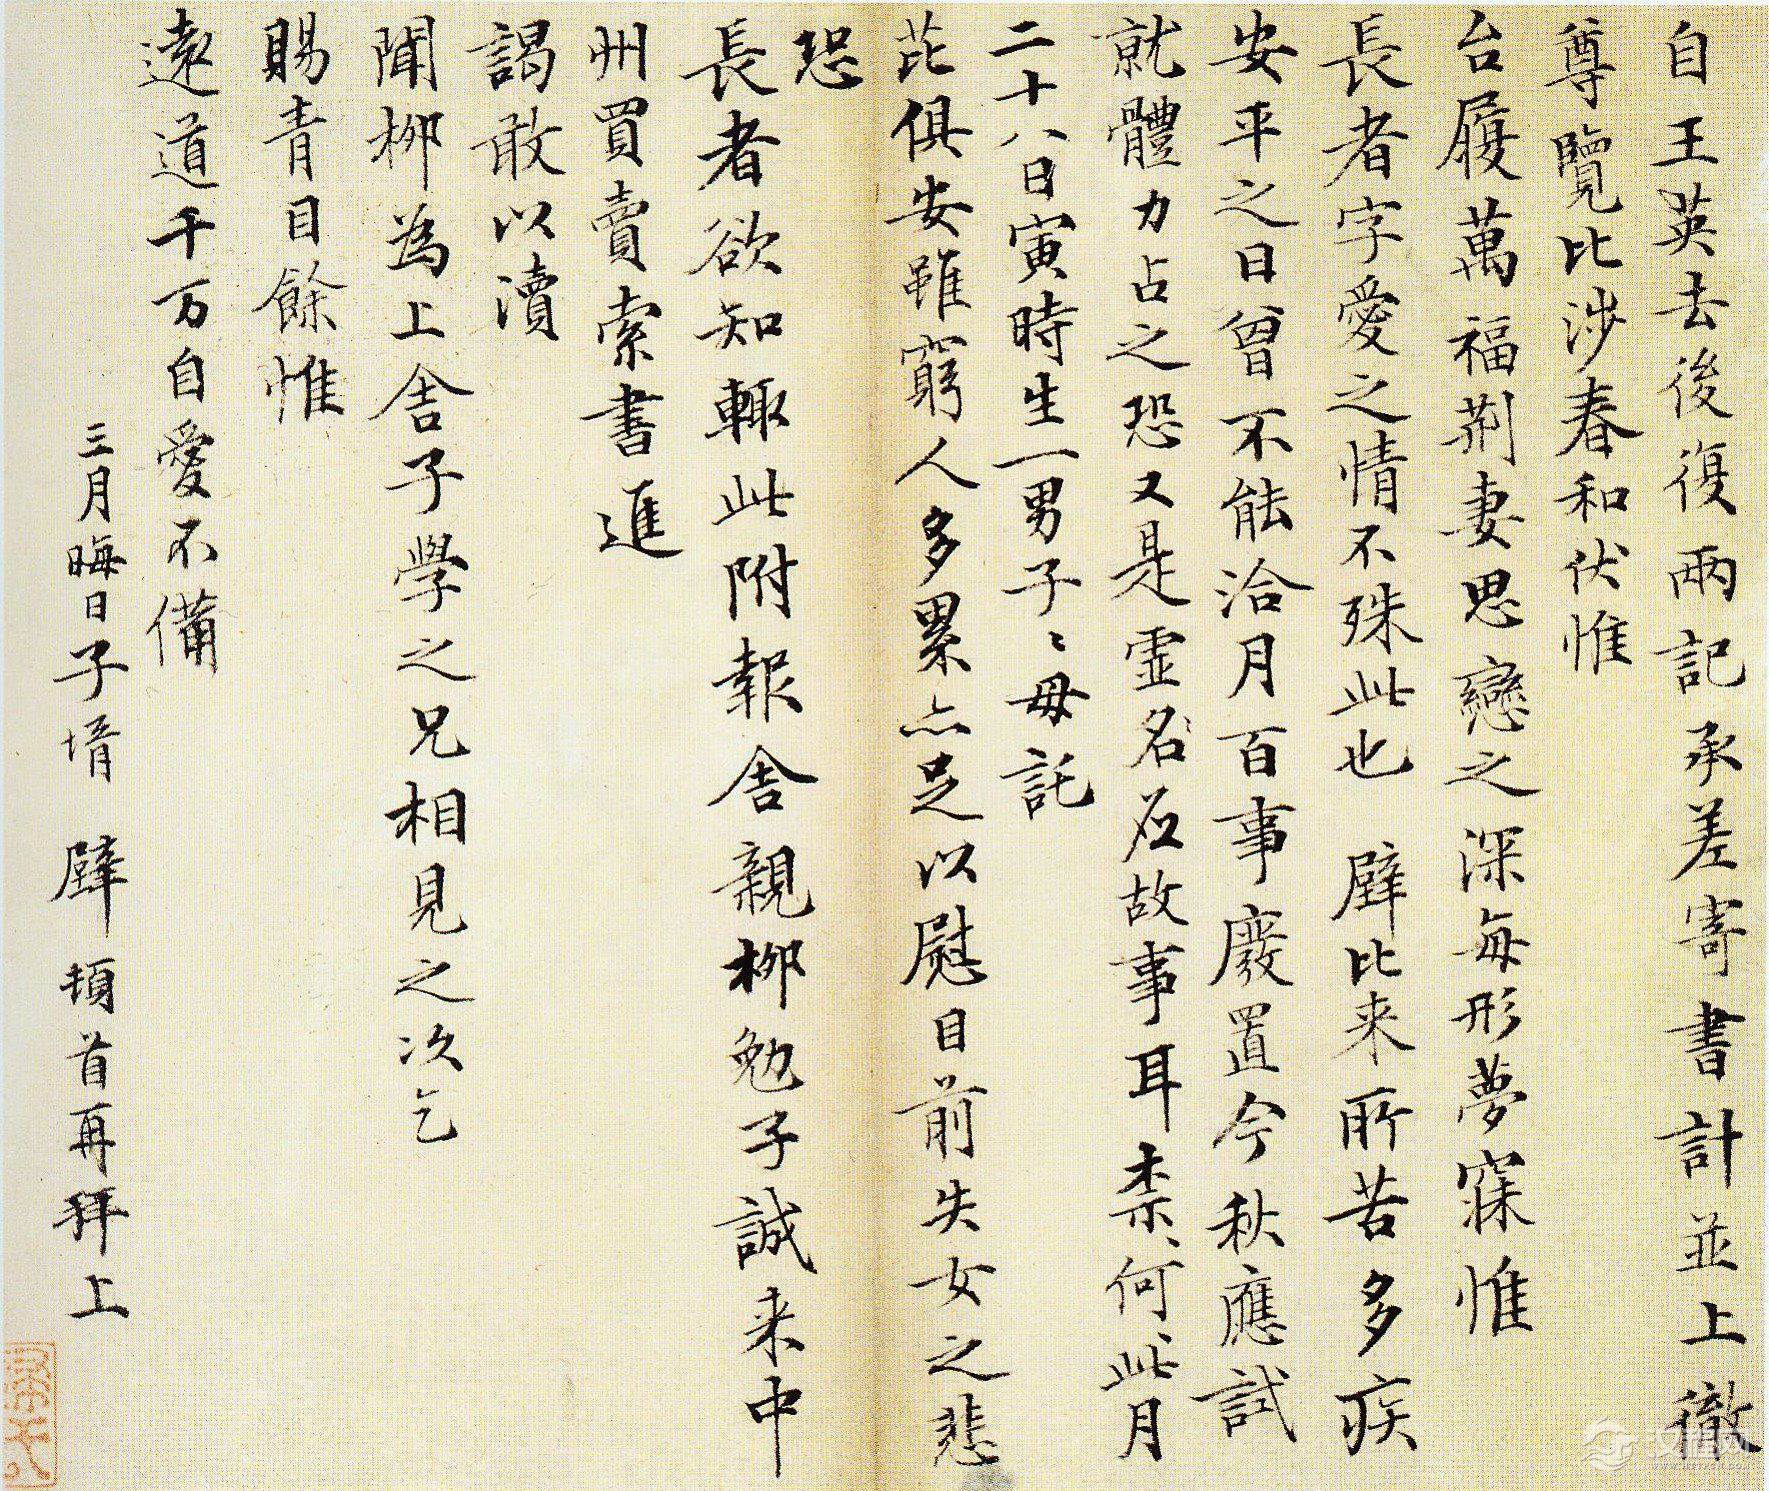 自王英去後復兩記承差寄書計並上徹
尊覽比涉春和伏惟
台履萬福荊妻思戀之深每形夢寐惟
長者字愛之情不殊此也 璧比来所苦多疾
安平之日曾不能洽月百事廢置今秋應試
就體力占之恐又是虛名應故事耳柰何柰何此月
二十八日寅時生一男子子母託
芘俱安雖窮人多累亦足以慰目前失女之悲
恐
長者欲知輒此附報舍親柳勉子誠来中
州買賣索書進
謁敢以瀆
聞柳為上舍子學之兄相見之次乞
賜青目餘惟
遠道千万自愛不備
三月晦日子壻 璧 頓首再拜上